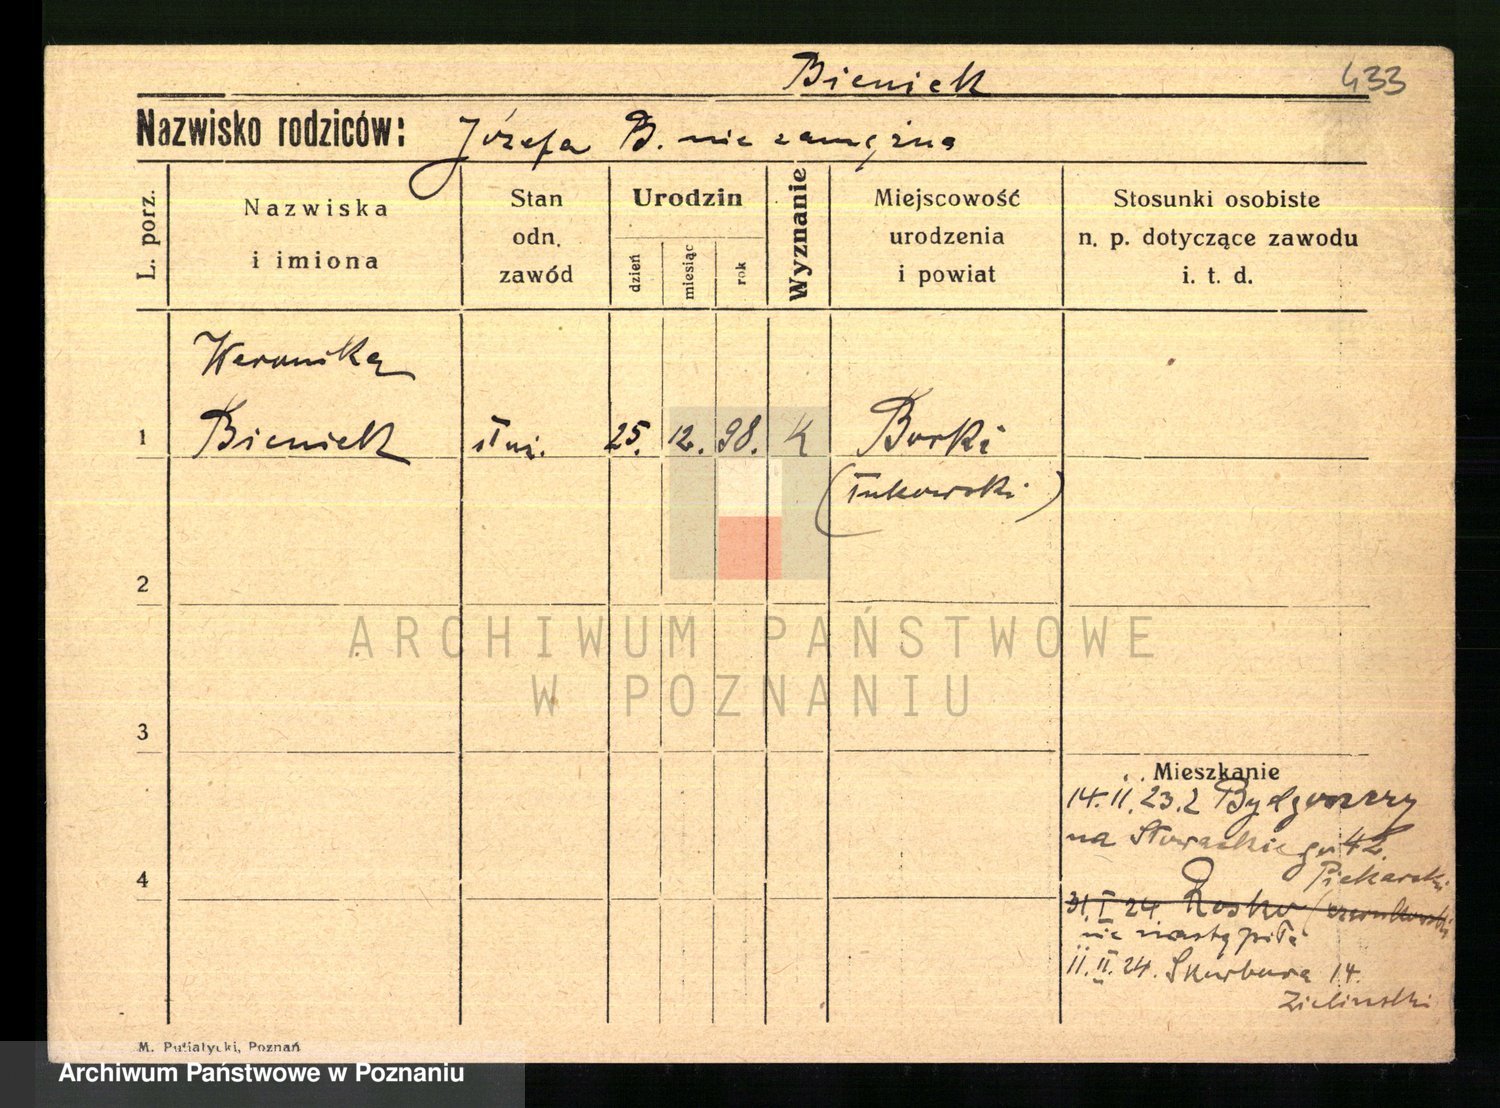 Bieniek
433
Nazwisko rodziców: Józefa B. niezamężna
L. porz.
Nazwiska
i imiona
Stan
odn.
zawód
Urodzin
dzień
miesiąc
rok
Wyznanie
Miejscowość
urodzenia
i powiat
Stosunki osobiste
n. p. dotyczące zawodu
i. t. d.
Weronika
1 Bieniek służ. 25. 12. 98. K Borki
(Łukowski)
2
ARCHIWUM PAŃSTWOWE
W POZNANIU
3
Mieszkanie
14. II. 23. z Bydgoszczy
na Słowackiego 42.
Piekarski
4
31. I 24. Rosko (czarnkowski
nie nastąpiło
11. II. 24. Skarbowa 14.
Zieliński
M. Putiatycki, Poznań
Archiwum Państwowe w Poznaniu